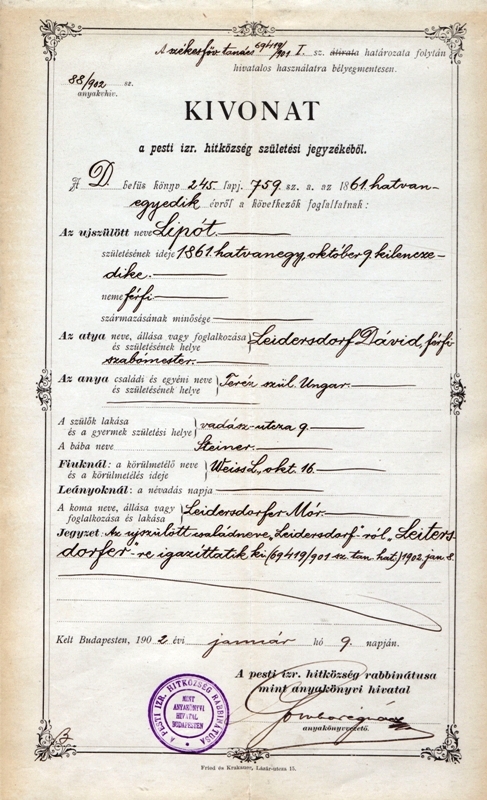 A székesfőv. tanács 69419/901 I. sz. átirata határozata folytán
hivatalos használatra bélyegmentesen.
88/902 sz.
anyakvhiv.
KIVONAT
a pesti izr. hitközség születési jegyzékéből.
A D. betüs könyv 245. lapj. 759. sz. a. az 1861. hatvan-
egyedik évről a következők foglaltatnak:
Az ujszülött neve Lipót.
születésének ideje 1861. hatvanegy, október 9 kilencze-
dike.
neme férfi
származásának minősége
Az atya neve, állása vagy foglalkozása és születésének helye } Leidersdorf Dávid, férfi
szabómester.
Az anya családi és egyéni neve és születésének helye } Teréz szül. Ungar.
A szülők lakása és a gyermek születési helye } vadász-utcza 9.
A bába neve Steiner.
Fiuknál: a körülmetélő neve és a körülmetélés ideje } Weiss L., okt. 16.
Leányoknál: a névadás napja
A koma neve, állása vagy foglalkozása és lakása } Leidersdorfer Mór.
Jegyzet: Az ujszülött családneve „Leidersdorf"-ról „Leiters-
dorfer"-re igazíttatik ki (69419/901 sz. tan. hat.) 1902 jan. 8.
Kelt Budapesten, 1902 évi január hó 9. napján.
A pesti izr. hitközség rabbinátusa
mint anyakönyvi hivatal
anyakönyvvezető.
A PESTI IZR. HITKÖZSÉG RABBINÁTUSA
MINT
ANYAKÖNYVI
HIVATAL
BUDAPESTEN
Fried és Krakauer, Lázár-utcza 13.